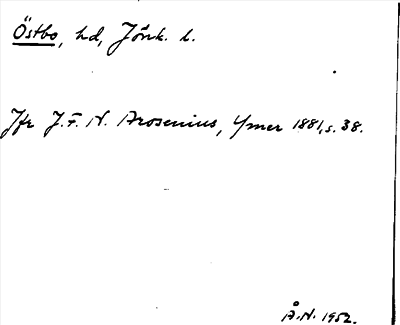 Östbo, hd, Jönk. l.
Jfr J.F.N. Arosenius, Ymer 1881, s. 38.
Å.N. 1952.